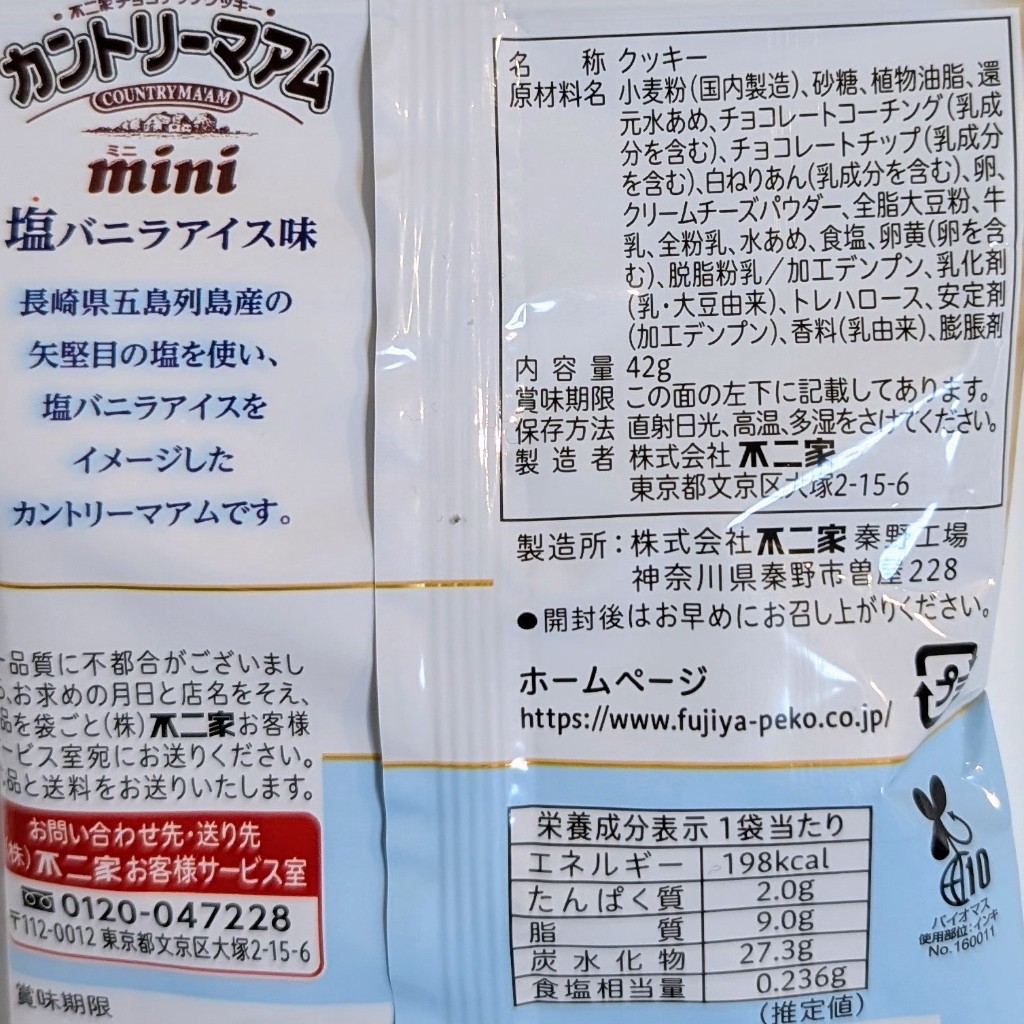 不二家チョコチップクッキー
カントリーマアム
COUNTRY MA'AM
ミニ
mini
塩バニラアイス味
長崎県五島列島産の
矢堅目の塩を使い、
塩バニラアイスを
イメージした
カントリーマアムです。
一品質に不都合がございまし
お求めの月日と店名をそえ、
品を袋ごと(株)不二家お客様
ービス室宛にお送りください。
品と送料をお送りいたします。
お問い合わせ先・送り先
(株)不二家お客様サービス室
0120-047228
〒112-0012 東京都文京区大塚2-15-6
賞味期限
名称 クッキー
原材料名 小麦粉(国内製造)、砂糖、植物油脂、還
元水あめ、チョコレートコーチング(乳成
分を含む)、チョコレートチップ(乳成分
を含む)、白ねりあん(乳成分を含む)、卵、
クリームチーズパウダー、全脂大豆粉、牛
乳、全粉乳、水あめ、食塩、卵黄(卵を含
む)、脱脂粉乳／加工デンプン、乳化剤
(乳・大豆由来)、トレハロース、安定剤
(加工デンプン)、香料(乳由来)、膨脹剤
内容量 42g
賞味期限 この面の左下に記載してあります。
保存方法 直射日光、高温、多湿をさけてください。
製造者 株式会社 不二家
東京都文京区大塚2-15-6
製造所：株式会社 不二家 秦野工場
神奈川県秦野市曽屋228
●開封後はお早めにお召し上がりください。
ホームページ
https://www.fujiya-peko.co.jp/
プラ
栄養成分表示 1袋当たり
エネルギー 198kcal
たんぱく質 2.0g
脂質 9.0g
炭水化物 27.3g
食塩相当量 0.236g
(推定値)
10
バイオマス
使用部位：インキ
No.160011